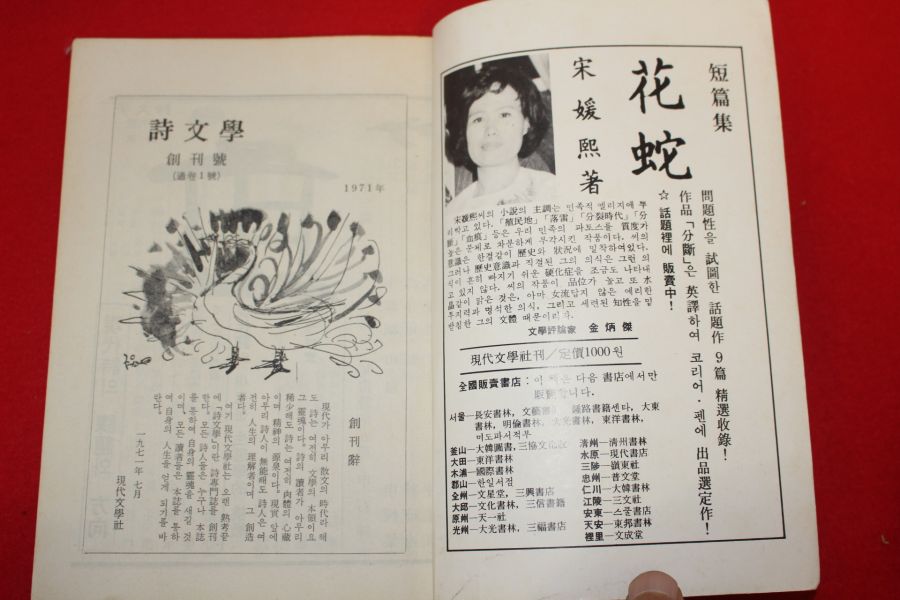 詩文學
創刊號
(通卷1號)
1971年
創刊辭
현대가 아무리 散文의 時代라 해
도 詩는 여전히 文學의 本領이요
그 靈魂이다。詩의 讀者가 아무리
稀少해도 詩는 여전히 肉體의 心臟
이며 精神의 源泉이다。現實 앞에
아무리 詩人이 無能해도 詩人은 여
전히 人生의 理解者이며 그 創造
者다。
여기 現代文學社는 오랜 熟考끝
에「詩文學」이란 詩專門誌를 創刊
한다。모든 詩人들은 누구나 本誌
를 통하여 自身의 靈魂을 새길 것
이며、모든 讀者들은 本誌를 통하
여 自身의 人生을 얻게 되기를 바
란다。
一九七一年 七月
現代文學社
短篇集
花蛇
宋媛熙著
問題性을 試圖한 話題作 9篇 精選收錄!
作品「分斷」은 英譯하여 코리어·펜에 出品選定作!
☆ 話題裡에 販賣中!
宋媛熙씨의 小說의 主調는 민족적 엘리지에 뿌
리박고 있다.「植民地」「落雷」「分裂時代」「分
斷」「血痕」등은 우리 민족의 파토스를 質度가
높은 문체로 차분하게 부각시킨 작품이다. 씨의
意識은 한결같이 歷史와 狀況에 밀착하여있다.
그러나 歷史意識과 직결된 그의 의식은 그런 의
식이 흔히 빠지기 쉬운 硬化症을 조금도 나타내
고 있지 않다. 씨의 작품이 品位가 높고 또 水
晶같이 맑은 것은, 아마 女流답지 않은 예리한
투지력과 명석한 의식, 그리고 세련된 知性을 밑
받침한 그의 文體 때문이리라.
文學評論家 金炳傑
現代文學社刊/定價1000원
全國販賣書店: 이 책은 다음 書店에서만
販賣합니다.
서울—長安書林, 文藝書林, 鍾路書籍센타, 大東
書林, 明倫書林, 大光書林, 東洋書林,
미도파서적부
釜山—大韓圖書, 三協文化社
大田—東洋書林
木浦—國際書林
群山—한일서점
全州—文星堂, 三興書店
大邱—文化書林, 三信書籍
原州—天一社
光州—大光書林, 三福書店
淸州—淸州書林
水原—現代書店
三陟—嶺東社
忠州—普文堂
仁川—大韓書林
江陵—三文社
安東—스쿨書店
天安—東邦書林
裡里—文成堂